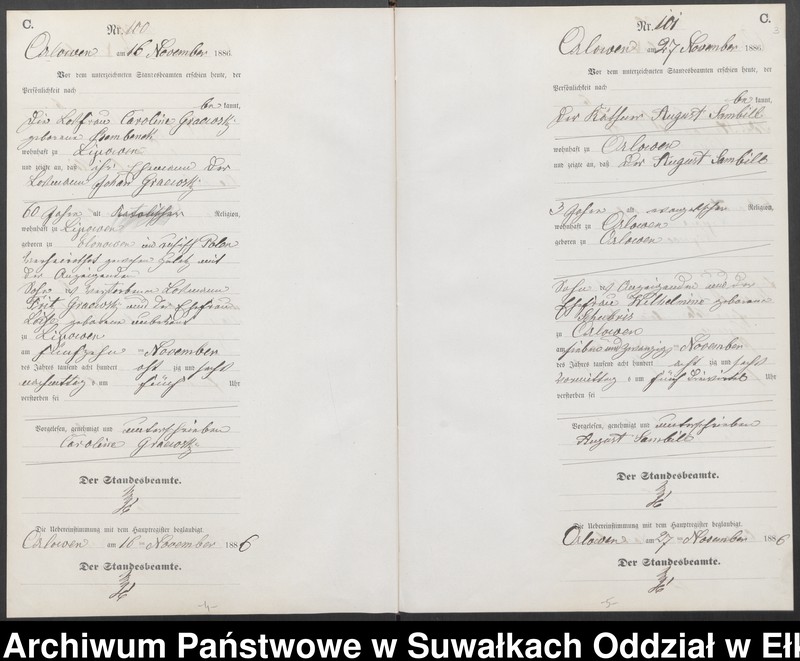 C.
Nr. 100
Orlowen am 16 November 1886.
Vor dem unterzeichneten Standesbeamten erschien heute, der
Persönlichkeit nach
be kannt,
Die Losfrau Caroline Gracwosky
geborene
wohnhaft zu Lipowen
und zeigte an, daß ihr Ehemann der
Losmann Johan Gracwosky
60 Jahre alt Katolischer Religion,
wohnhaft zu Lipowen
geboren zu in russisch Polen
verheirathet gewesen zuletzt mit
der Anzeigenden
Sohn des verstorbenen Losmann
Gracwosky und der Ehefrau
geborene unbekant
zu Lipowen
am fünfzehn ten November
des Jahres tausend acht hundert acht zig und sechs
nachmittag s um fünf Uhr
verstorben sei
Vorgelesen, genehmigt und unterschrieben
Caroline Gracwosky
Der Standesbeamte.
Die Uebereinstimmung mit dem Hauptregister beglaubigt.
Orlowen am 16 ten November 1886
Der Standesbeamte.
-4-
C.
Nr. 101
Orlowen am 27 November 1886
Vor dem unterzeichneten Standesbeamten erschien heute, der
Persönlichkeit nach
be kannt,
Der Käthner August Sambill
wohnhaft zu Orlowen
und zeigte an, daß der August Sambill
3 Jahre alt evangelischer Religion,
wohnhaft zu Orlowen
geboren zu Orlowen
Sohn des Anzeigenden und der
Ehefrau Wilhelmine geborene
zu Orlowen
am sieben und zwanzig ten November
des Jahres tausend acht hundert acht zig und sechs
vormittag s um fünf Uhr
verstorben sei
Vorgelesen, genehmigt und unterschrieben
August Sambill
Der Standesbeamte.
Die Uebereinstimmung mit dem Hauptregister beglaubigt.
Orlowen am 27 ten November 1886
Der Standesbeamte.
-5-
Archiwum Państwowe w Suwałkach Oddział w Ełk